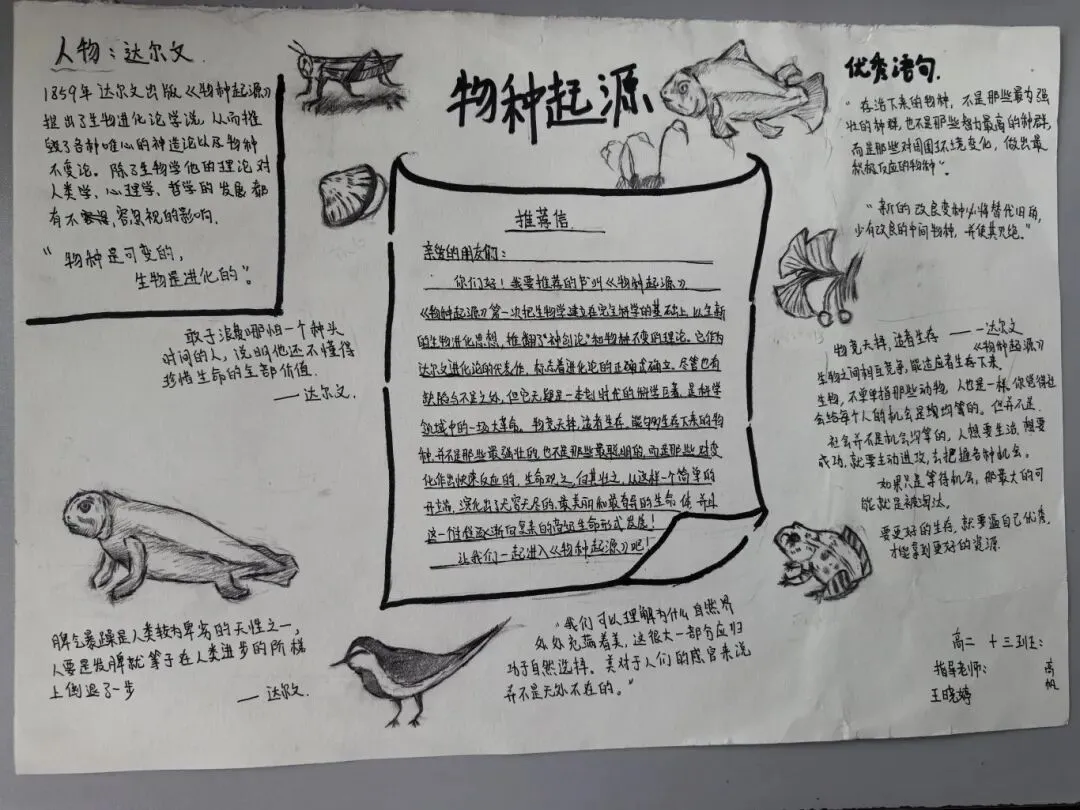 物种起源
人物：达尔文
1859年达尔文出版《物种起源》
提出了生物进化论学说，从而摧
毁了各种唯心的神造论以及物种
不变论。除了生物学他的理论对
人类学、心理学、哲学的发展都
有不容忽视的影响.
“物种是可变的，
生物是进化的”。
敢于浪费哪怕一个钟头
时间的人，说明他还不懂得
珍惜生命的全部价值.
——达尔文.
脾气暴躁是人类较为卑劣的天性之一，
人要是发脾就等于在人类进步的阶梯
上倒退了一步
——达尔文.
推荐信
亲爱的朋友们：
你们好！我要推荐的书叫《物种起源》
《物种起源》第一次把生物学建立在完全科学的基础上，以全新
的生物进化思想，推翻了“神创论”和物种不变的理论。它作为
达尔文进化论的代表作，标志着进化论的正式确立。尽管也有
缺陷与不足之处，但它无疑是一本划时代的科学巨著，是科学
领域中的一场大革命。物竞天择，适者生存，能够生存下来的物
种，并不是那些最强壮的，也不是那些最聪明的，而是那些对变
化作出快速反应的，生命观之，何其壮之，从这样一个简单的
开端，演化出了无穷无尽的、最美丽和最奇异的生命体，并且
这一过程逐渐向未来的高级生命形式发展！
让我们一起进入《物种起源》吧！
“我们可以理解为什么自然界
处处充满着美，这很大一部分应归
功于自然选择。美对于人们的感官来说
并不是无处不在的。”
优秀语句.
“存活下来的物种，不是那些最为强
壮的种群，也不是那些智力最高的种群，
而是那些对周围环境变化，做出最
积极反应的物种”。
“新的改良变种必将替代旧的，
少有改良的中间物种，并使其灭绝。”
物竞天择，适者生存 ——达尔文
《物种起源》
生物之间相互竞争，能适应者生存下来。
生物，不单单指那些动物，人也是一样，你觉得社
会给每个人的机会是均等的。但并不是.
社会并不是机会均等的，人想要生活，想要
成功，就要主动进攻，去把握各种机会。
如果只是等待机会，那最大的可
能就是被淘汰。
要更好的生存，就要逼自己优秀，
才能拿到更好的资源.
高二 十三班：
指导老师：
王晓婷